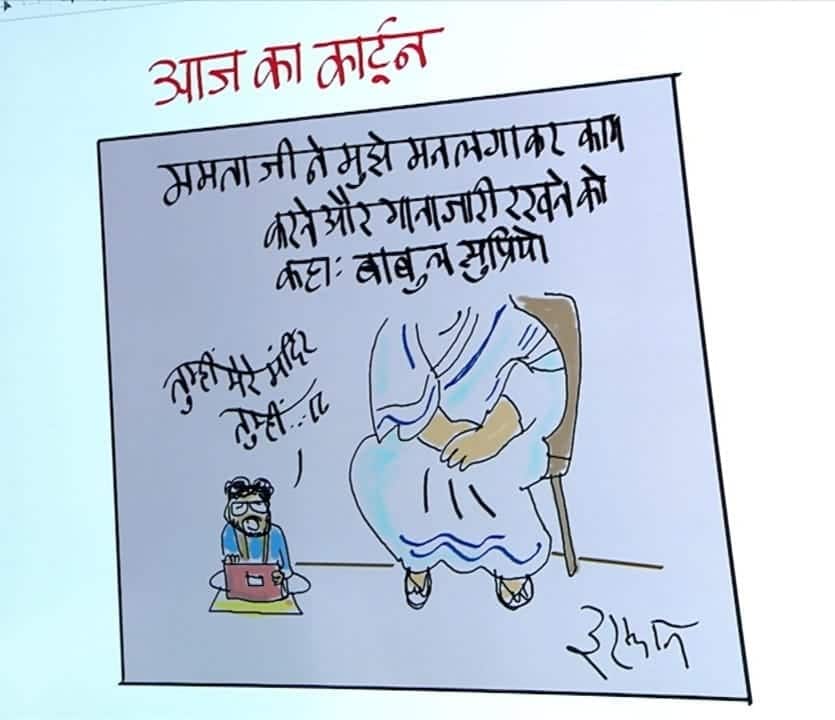 आज का कार्टून
ममता जी ने मुझे मन लगाकर काम
करने और गाना जारी रखने को
कहा: बाबुल सुप्रियो
तुम्हीं मेरे मंदिर
तुम्हीं...!!
इरफान